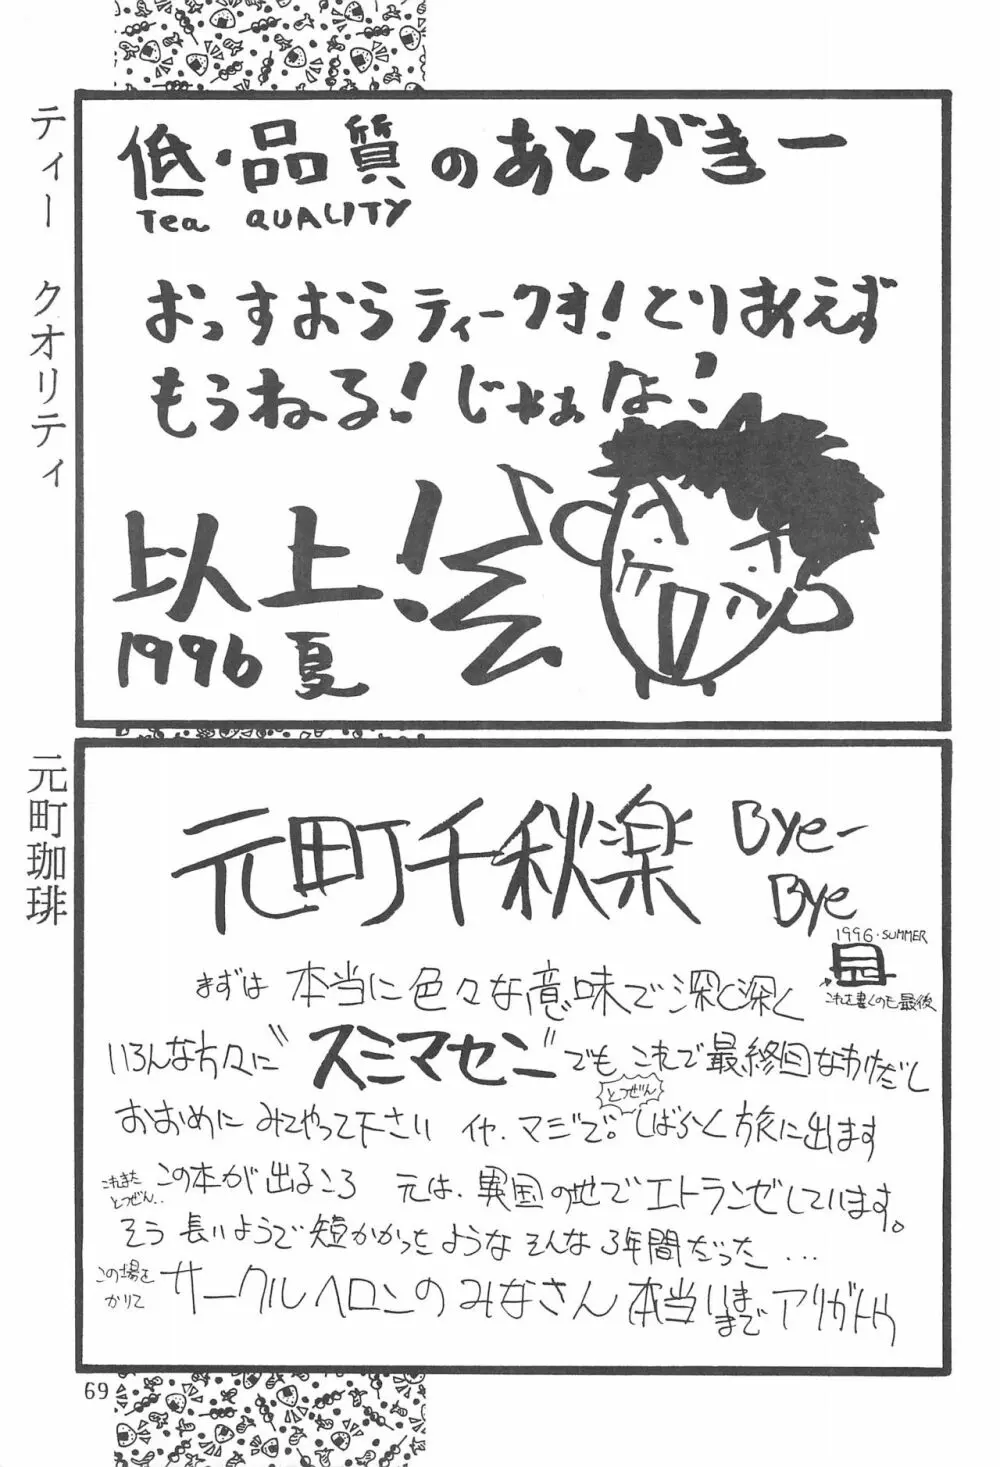 ティー クオリティ
低・品質のあとがきー
Tea QUALITY
おっすおらティークオ!とりあえず
もうねる!じゃぁな!
以上!
1996 夏
元町珈琲
元町千秋楽
Bye-
Bye
1996・SUMMER
これを書くのも最後
まずは 本当に色々な意味で深く深く
いろんな方々に"スミマセン"でも これで最終回なわけだし
とつぜん
おおめに みてやって下さい イヤ、マジで。しばらく旅に出ます
これまた
とつぜん‥
この本が出るころ 元は、異国の地でエトランゼしています。
そう 長いようで短かかったような そんな3年間だった...
この場を
かりて
サークルヘロンのみなさん本当いままでアリガトウ
69